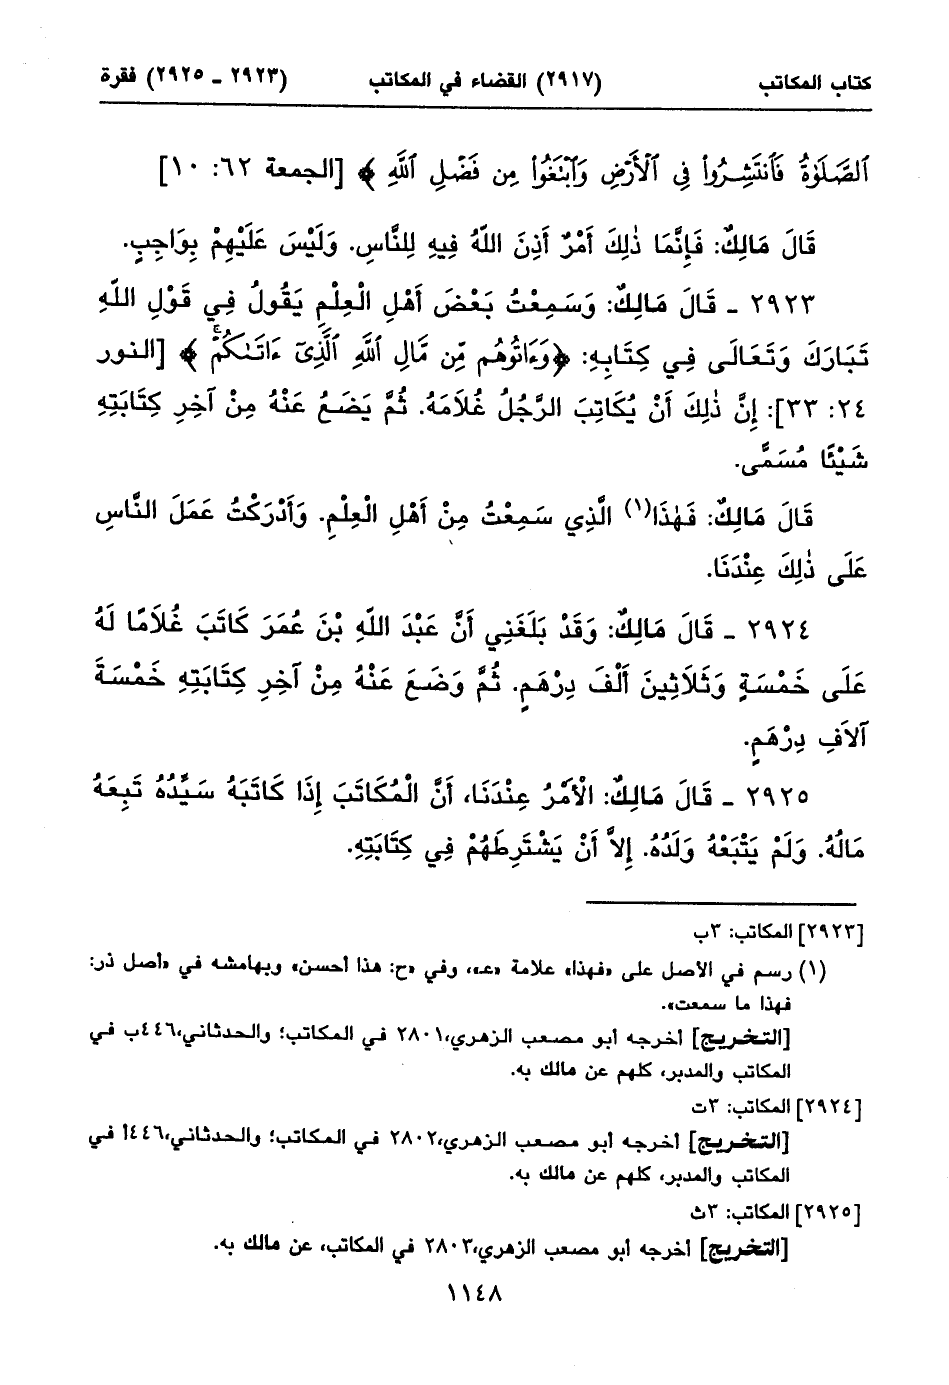 كتاب المكاتب (٢٩١٧) القضاء في المكاتب (٢٩٢٣ ـ ٢٩٢٥) فقرة
ٱلصَّلَوٰةُ فَٱنتَشِرُواْ فِى ٱلْأَرْضِ وَٱبْتَغُواْ مِن فَضْلِ ٱللَّهِ ﴾ [الجمعة ٦٢: ١٠]
قَالَ مَالِكٌ: فَإِنَّمَا ذٰلِكَ أَمْرٌ أَذِنَ اللّهُ فِيهِ لِلنَّاسِ. وَلَيْسَ عَلَيْهِمْ بِوَاجِبٍ.
٢٩٢٣ ـ قَالَ مَالِكٌ: وَسَمِعْتُ بَعْضَ أَهْلِ الْعِلْمِ يَقُولُ فِي قَوْلِ اللّهِ
تَبَارَكَ وَتَعَالَى فِي كِتَابِهِ: ﴿وَءَاتُوهُم مِّن مَّالِ ٱللَّهِ ٱلَّذِىٓ ءَاتَىٰكُمْۚ ﴾ [النور
٢٤: ٣٣]: إِنَّ ذٰلِكَ أَنْ يُكَاتِبَ الرَّجُلُ غُلَامَهُ. ثُمَّ يَضَعُ عَنْهُ مِنْ آخِرِ كِتَابَتِهِ
شَيْئًا مُسَمًّى.
قَالَ مَالِكٌ: فَهٰذَا(١) الَّذِي سَمِعْتُ مِنْ أَهْلِ الْعِلْمِ. وَأَدْرَكْتُ عَمَلَ النَّاسِ
عَلَى ذٰلِكَ عِنْدَنَا.
٢٩٢٤ ـ قَالَ مَالِكٌ: وَقَدْ بَلَغَنِي أَنَّ عَبْدَ اللّهِ بْنَ عُمَرَ كَاتَبَ غُلَامًا لَهُ
عَلَى خَمْسَةٍ وَثَلَاثِينَ أَلْفَ دِرْهَمٍ. ثُمَّ وَضَعَ عَنْهُ مِنْ آخِرِ كِتَابَتِهِ خَمْسَةَ
آلاَفِ دِرْهَمٍ.
٢٩٢٥ ـ قَالَ مَالِكٌ: الْأَمْرُ عِنْدَنَا، أَنَّ الْمُكَاتَبَ إِذَا كَاتَبَهُ سَيِّدُهُ تَبِعَهُ
مَالُهُ. وَلَمْ يَتْبَعْهُ وَلَدُهُ. إِلاَّ أَنْ يَشْتَرِطَهُمْ فِي كِتَابَتِهِ.
[٢٩٢٣] المكاتب: ٣ب
(١) رسم في الأصل على «فهذا» علامة «عـ»، وفي «ح: هذا أحسن» وبهامشه في «أصل ذر:
فهذا ما سمعت».
[التخريج] أخرجه أبو مصعب الزهري،٢٨٠١ في المكاتب؛ والحدثاني،٤٤٦ب في
المكاتب والمدبر، كلهم عن مالك به.
[٢٩٢٤] المكاتب: ٣ت
[التخريج] أخرجه أبو مصعب الزهري،٢٨٠٢ في المكاتب؛ والحدثاني،٤٤٦أ في
المكاتب والمدبر، كلهم عن مالك به.
[٢٩٢٥] المكاتب: ٣ث
[التخريج] أخرجه أبو مصعب الزهري،٢٨٠٣ في المكاتب، عن مالك به.
١١٤٨